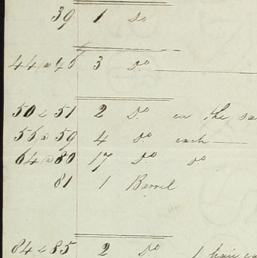 39 1 Do
44 a 46 3 Do
50 a 51 2 Do on the
56 a 59 4 Do each
64 a 80 17 Do Do
81 1 Barrel
84 a 85 2 Do 1